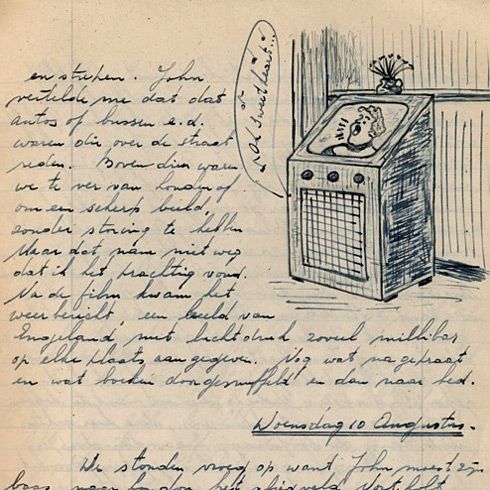 Oh Sweetheart...
en strepen. John
vertelde me dat dat
autos of bussen e.d.
waren die over de straat
reden. Bovendien waren
we te ver van Londen af
om een scherp beeld,
zonder storing te hebben
Maar dat nam niet weg
dat ik het prachtig vond.
Na de film kwam het
weerbericht een beeld van
Engeland, met luchtdruk zoveel millibar
op elke plaats aangegeven. Nog wat nagepraat
en wat boeken doorgesnuffeld en dan naar bed.
Woensdag 10 Augustus.
We stonden vroeg op want John moest zijn
baas naar het vliegveld